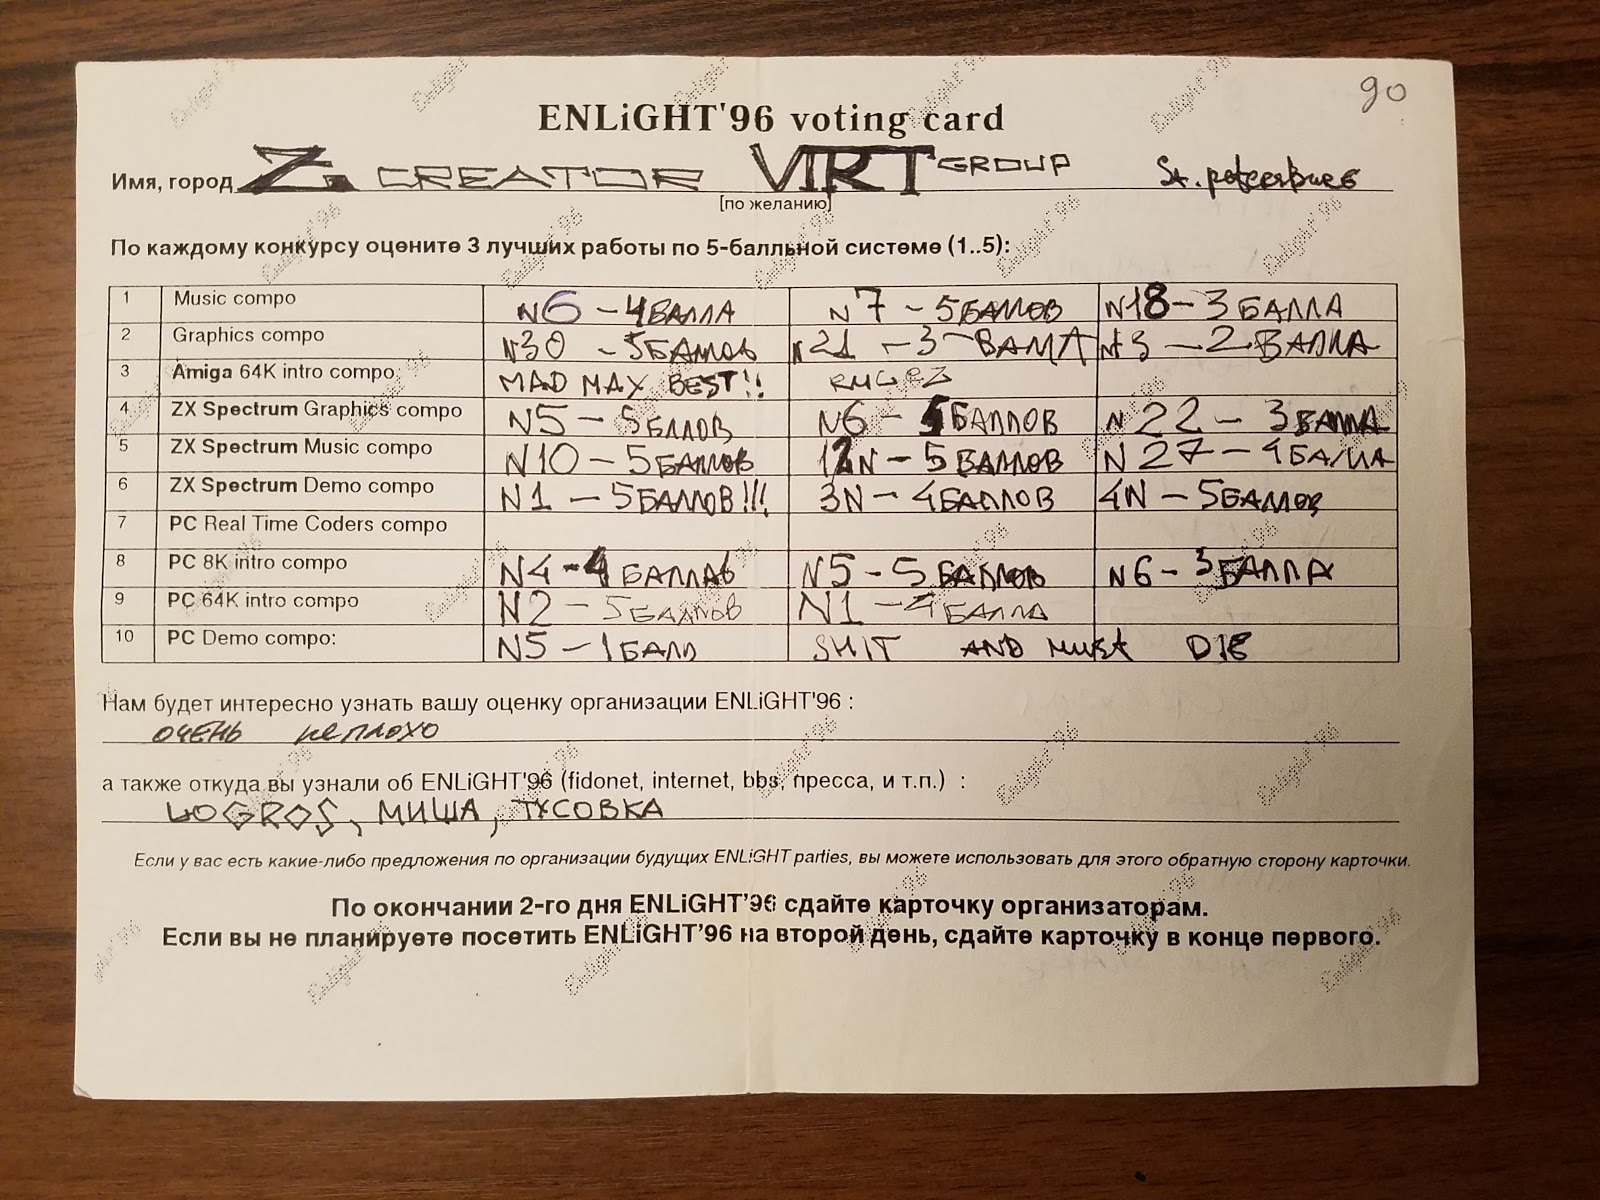 90
ENLiGHT'96 voting card
Имя, город Z CREATOR VIRT GROUP St. petersburg
[по желанию]
По каждому конкурсу оцените 3 лучших работы по 5-балльной системе (1..5):
1 Music compo N6 - 4 БАЛЛА N7 - 5 БАЛЛОВ N18 - 3 БАЛЛА
2 Graphics compo N30 - 5 БАЛЛОВ N21 - 3 N3 - 2 БАЛЛА
3 Amiga 64K intro compo MAD MAX BEST!!
4 ZX Spectrum Graphics compo N5 - 5 БЛЛОВ N6 - 5 БАЛЛОВ N22 - 3 БАЛЛА
5 ZX Spectrum Music compo N10 - 5 БАЛЛОВ 12N - 5 БАЛЛОВ N27 - 4 БАЛЛА
6 ZX Spectrum Demo compo N1 - 5 БАЛЛОВ!!! 3N - 4 БАЛЛОВ 4N - 5 БАЛЛОВ
7 PC Real Time Coders compo
8 PC 8K intro compo N4 - 4 БАЛЛАВ N5 - 5 БАЛЛОВ N6 - 3 БАЛЛА
9 PC 64K intro compo N2 - 5 БАЛЛОВ N1 - 4 БАЛЛА
10 PC Demo compo: N5 - 1 БАЛЛ SHIT AND MUST DIE
Нам будет интересно узнать вашу оценку организации ENLiGHT'96 :
ОЧЕНЬ НЕПЛОХО
а также откуда вы узнали об ENLiGHT'96 (fidonet, internet, bbs, пресса, и т.п.) :
LOGROS, МИША, ТУСОВКА
Если у вас есть какие-либо предложения по организации будущих ENLiGHT parties, вы можете использовать для этого обратную сторону карточки.
По окончании 2-го дня ENLiGHT'96 сдайте карточку организаторам.
Если вы не планируете посетить ENLiGHT'96 на второй день, сдайте карточку в конце первого.